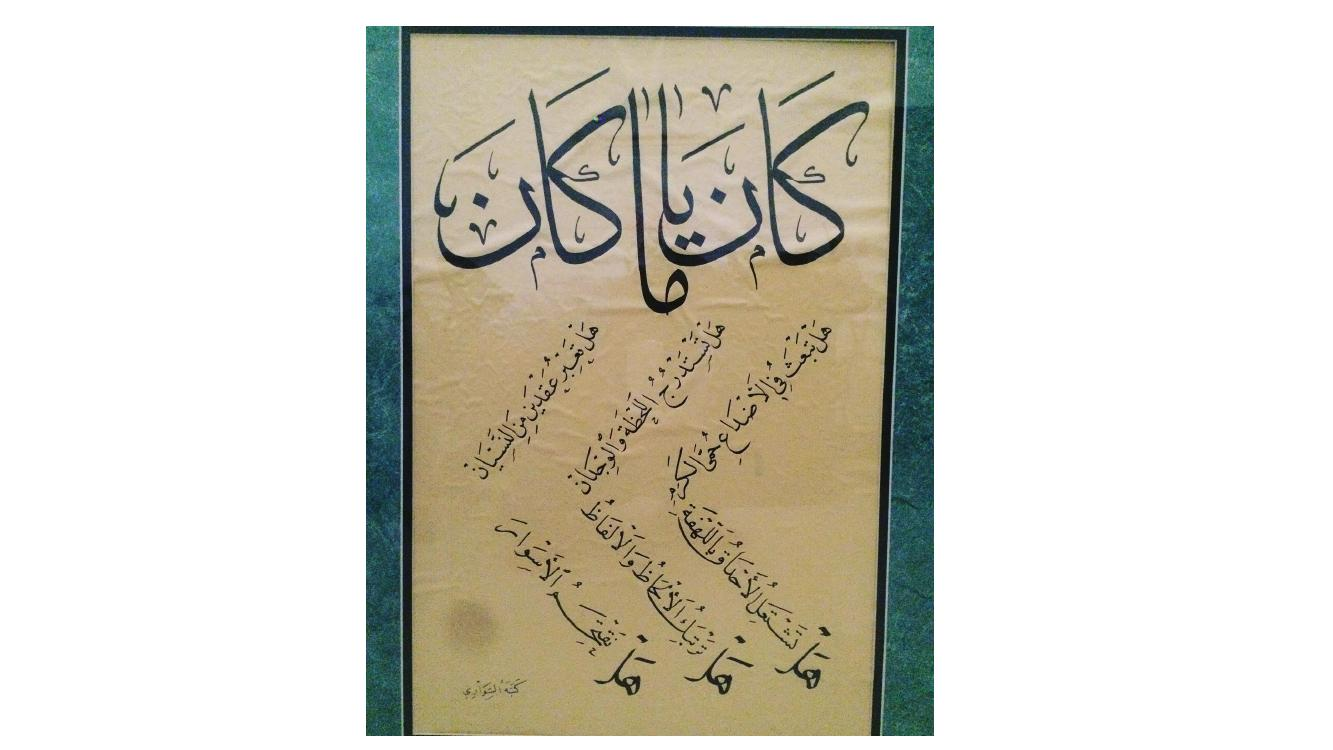 كَانَ يَا مَا كَانَ
هَلْ تَبْعَثُ فِي الْأَضْلَاعِ حُمَّى الْكَرَمِ
هَلْ تَسْتَدْرِجُ اللَّحْظَةَ وَالْوِجْدَانْ
هَلْ تَعْبُرُ عُقَدَيْنِ مِنَ النِّسْيَانْ
هَلْ تَشْتَعِلُ الْأَحْدَاقُ بِاللَّهْفَةِ
هَلْ تَرْتَبِكُ الْأَلْحَاظُ وَالْأَلْفَاظُ
هَلْ تَقْتَحِمُ الْأَسْوَارَ
كَتَبَهُ